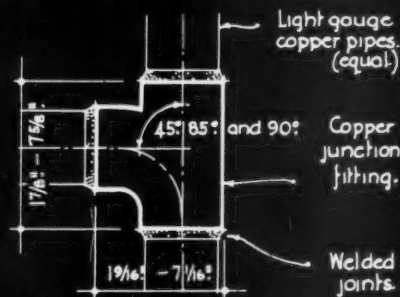 Light gauge
copper pipes.
(equal)
45° 85° and 90°
Copper
junction
fitting.
1 7/8" - 7 5/8"
Welded
joints.
1 9/16" - 7 1/16"